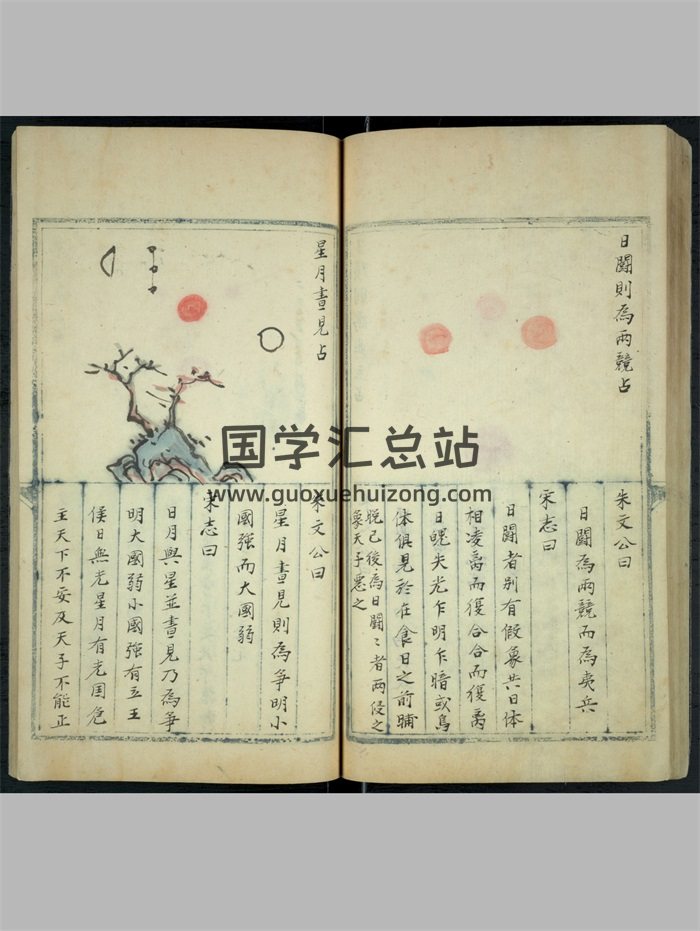 日鬪則為兩競占
朱文公曰
日鬪為兩競而為夷兵
宋志曰
日鬪者別有假象共日体
相凌离而復合合而復离
日晚失光乍明乍暗或鳥
体俱見於在食日之前晡
晚已後為日鬪〻者兩侵之
象天子惡之
星月晝見占
朱文公曰
星月晝見則為爭明小
國強而大國弱
宋志曰
日月與星並晝見乃為爭
明大國弱小國強有立王
侯日無光星月有光国危
主天下不安及天子不能正
国学汇总站
www.guoxuehuizong.com